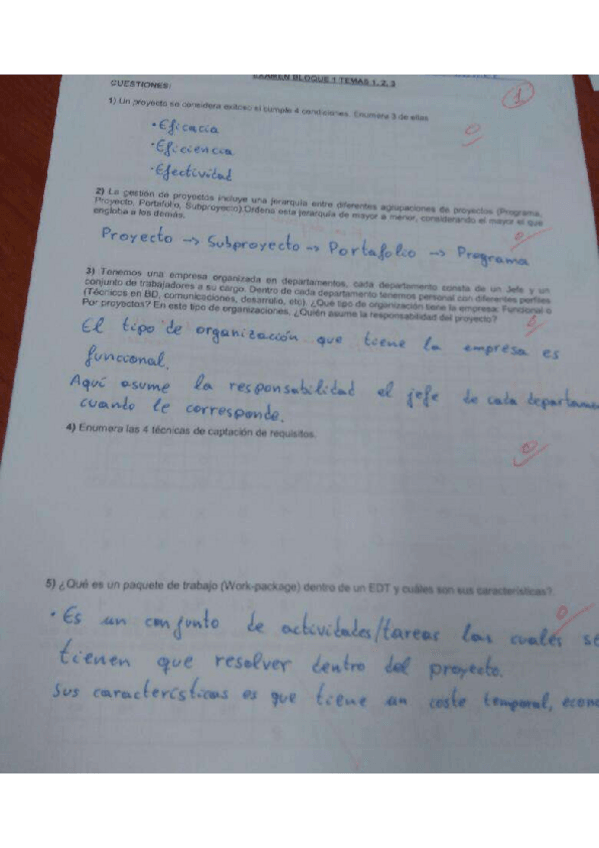 EXAMEN BLOQUE 1 TEMAS 1, 2, 3
CUESTIONES:
1
1) Un proyecto se considera exitoso si cumple 4 condiciones. Enumera 3 de ellas
0
·Eficacia
·Eficiencia
·Efectividad
2) La gestión de proyectos incluye una jerarquía entre diferentes agrupaciones de proyectos (Programa,
Proyecto, Portafolio, Subproyecto).Ordena esta jerarquía de mayor a menor, considerando el mayor el que
engloba a los demás.
0
Proyecto → Subproyecto → Portafolio → Programa
3) Tenemos una empresa organizada en departamentos, cada departamento consta de un Jefe y un
conjunto de trabajadores a su cargo. Dentro de cada departamento tenemos personal con diferentes perfiles
(Técnicos en BD, comunicaciones, desarrullo, etc). ¿Qué tipo de organización tiene la empresa: Funcional o
Por proyectos? En este tipo de organizaciones, ¿Quién asume la responsabilidad del proyecto?
El tipo de organización que tiene la empresa es
funcional.
Aquí asume la responsabilidad el jefe de cada departame
cuando le corresponde.
4) Enumera las 4 técnicas de captación de requisitos.
0
5) ¿Qué es un paquete de trabajo (Work-package) dentro de un EDT y cuáles son sus características?
0
·Es un conjunto de actividades/tareas las cuales se
tienen que resolver dentro del proyecto.
Sus características es que tiene un coste temporal, econ